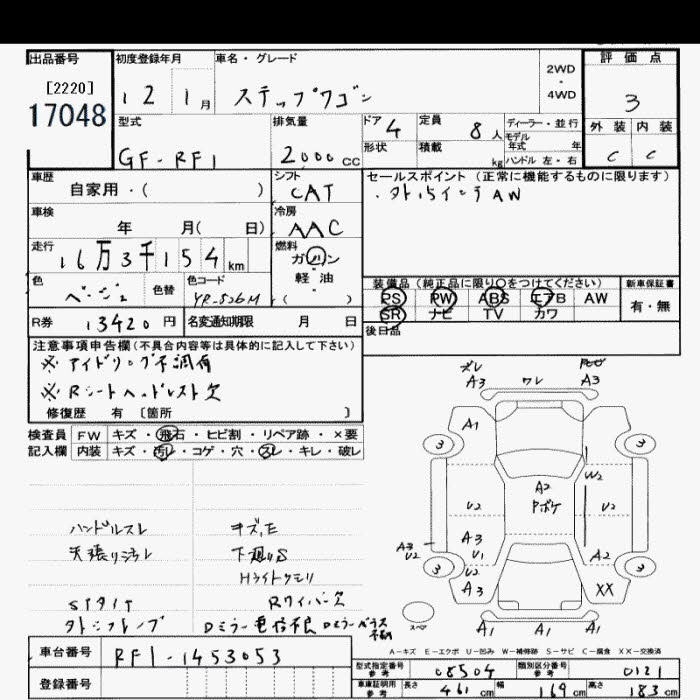 出品番号 初度登録年月 車名・グレード 評価点
[2220] 2WD
17048 12 1月 ステップワゴン ・4WD 3
型式 排気量 ドア 4 定員 8人 ディーラー・並行 外装 内装
モデル
GF-RF1 2000cc 形状 積載 kg 年式 年 C C
ハンドル 左・右
車歴 シフト セールスポイント(正常に機能するものに限ります)
自家用・( ) CAT ・外15インチAW
車検 冷房
年 月( 日) AAC
走行 燃料
16万3千154km ガソリン
軽油
色 色替 色コード ( ) 装備品(純正品に限り○をつけてください) 新車保証書
ベージュ YR-526M PS PW ABS エアB AW 有・無
R券 13420円 名変通知期限 月 日 SR ナビ TV カワ
後日品
注意事項申告欄(不具合内容等は具体的に記入して下さい)
※アイドリング不調有
※Rシートヘッドレスト欠
修復歴 有 〔箇所 〕
検査員 FW キズ・飛石・ヒビ割・リペア跡・×要
記入欄 内装 キズ・汚レ・コゲ・穴・スレ・キレ・破レ
ハンドルスレ キズ,E
天張リ汚レ 下廻りS
Hライトクモリ
Rワイパー欠
Dミラー電格不良
ズレ
A3 ワレ A3
A1
3 3
W2
A2
U2 Pボケ U2
A3
A3 U2 U1 A2
3 U2 3
A3 XX
スペア A1 A1 A1
A-キズ E-エクボ U-凹み W-補修跡 S-サビ C-腐食 XX-交換済
車台番号 RF1-1453053
型式指定番号 参考 08504 類別区分番号 参考 0121
登録番号 車庫証明用 参考 長さ 461cm 幅 169cm 高さ 183cm